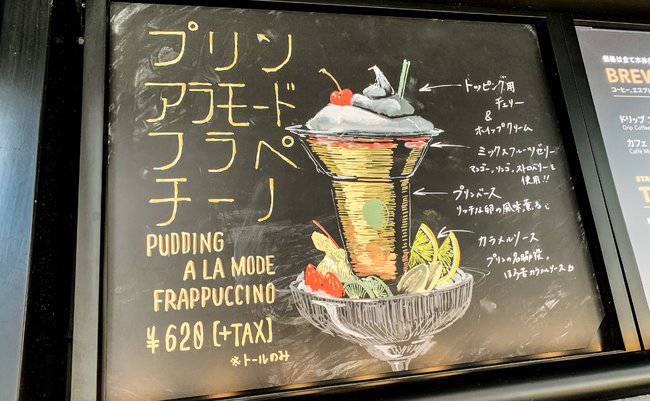 プリン
アラモード
フラペ
チーノ
PUDDING
A LA MODE
FRAPPUCCINO
¥620 [+TAX]
※トールのみ
トッピング用
チェリー
&
ホイップクリーム
ミックスフルーツゼリー
マンゴー、リンゴ、ストロベリーを
使用!!
プリンベース
リッチな卵の風味
カラメルソース
プリンの名脇役。
ほろ苦カラメルソース
価格は全て本体
BREW
コーヒー、エスプ
ドリップ
Drip Coffee
カフェ
Caffè M
STA
T